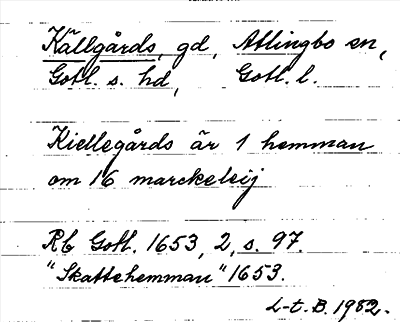 Källgårds, gd, Atlingbo sn,
Gotl. s. hd, Gotl. l.
Kiellegårds är 1 hemman
om 16 marckeleij
Rb Gotl. 1653, 2, s. 97.
"Skattehemman" 1653.
L-t. B. 1982.